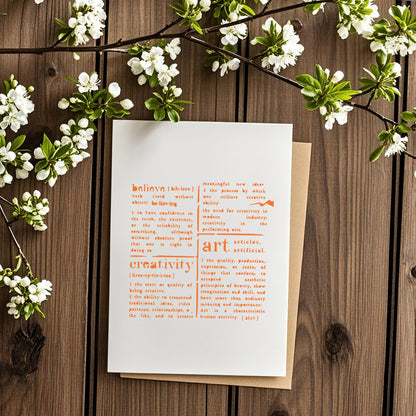 believe [bih-leev]
verb (used without
object) be·liev·ing
to have confidence in
the truth, the existence,
or the reliability of
something, although
without absolute proof
that one is right in
doing so
creativity
[kree-ey-tiv-i-tee]
1 the state or quality of
being creative.
2 the ability to transcend
traditional ideas, rules,
patterns, relationships, or
the like, and to create
meaningful new ideas
the process by which
one utilizes creative
ability
the need for creativity in
modern industry;
creativity in the
performing arts.
art articles.
artificial.
1 the quality, production,
expression, or realm, of
things that conform to
accepted aesthetic
principles of beauty, show
imagination and skill, and
have more than ordinary
meaning and importance:
art is a characteristic
human activity. [ahrt]